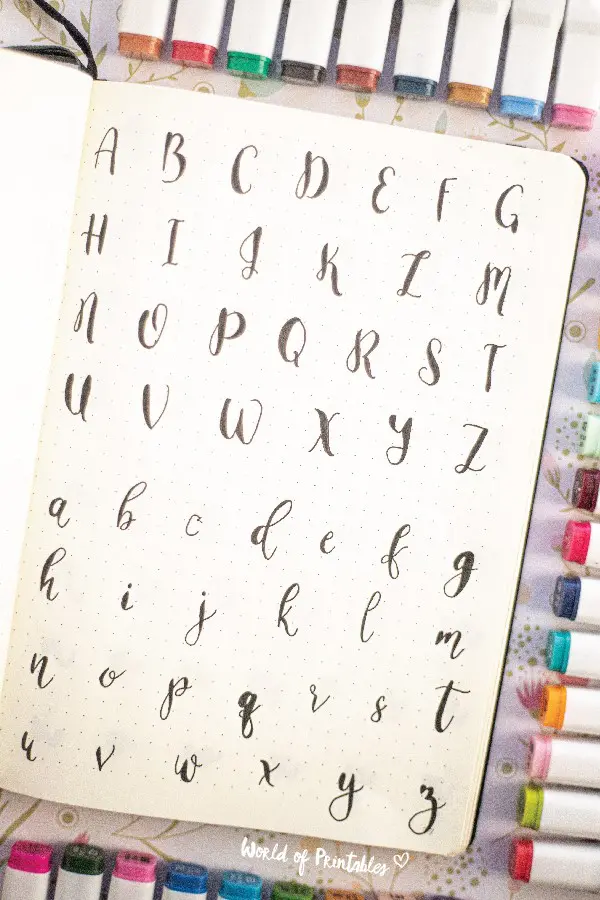 A B C D E F G
H I J K L M
N O P Q R S T
U V W X Y Z
a b c d e f g
h i j k l m
n o p q r s t
u v w x y z
World of Printables